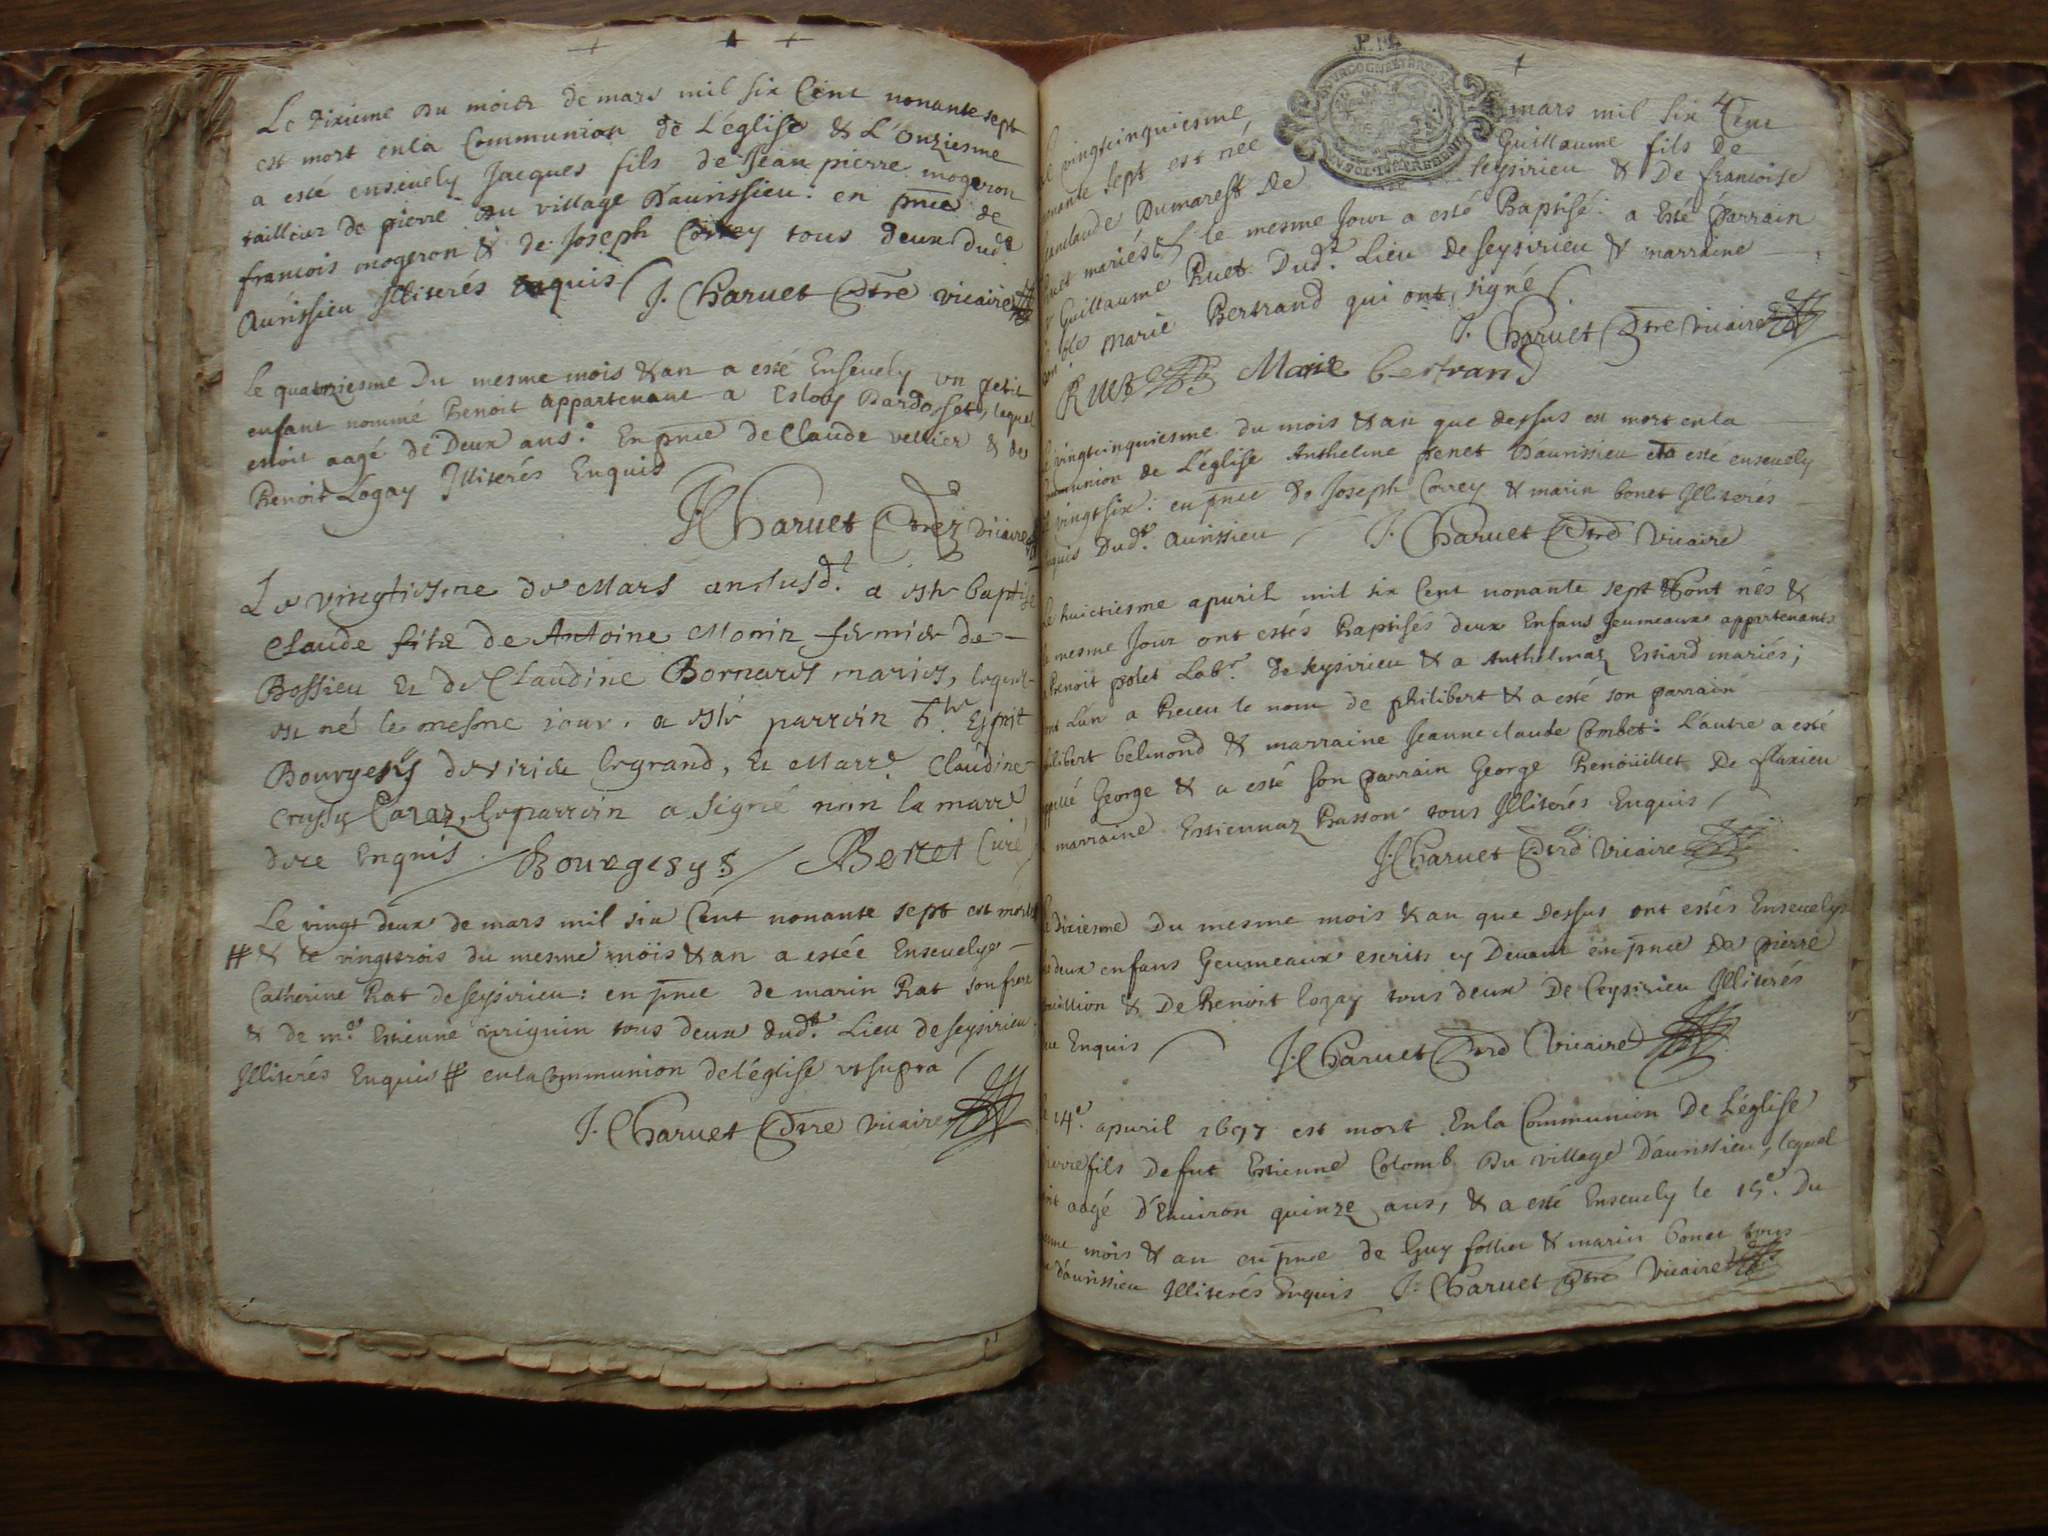 Le dixieme du mois de mars mil six Cent nonante sept
est mort en la Communion de L'églisse & L'Onziesme
a esté ensevely Jacques fils de Jean pierre mogeron
tailleur de pierre du village Daurissieu: en pnce de
francois mogeron & de Joseph Correy tous deux dudt
Aurissieu Illiterés enquis J. Charuet ptre vicaire
le quatriesme Du mesme mois & an a esté Ensevely un petit
enfant nommé Benoit appartenant a Esloy Bardosset, lequel
estoit aagé de Deux ans. En pnce de Claude vettier & de
Benoit Logay Illiterés Enquis
J. Charuet ptre vicaire
Le vingtiesme de Mars an susdt a esté baptisé
Claude filz de Antoine Monin fermier de
Bossieu et de Claudine Bornard mariés, lequel
est né le mesme jour. a esté parrein Esprit
Bourgesys de virieu legrand, et Marre Claudine
le parrein a signé non la marre
dece Enquis. Bourgesys Bertet Curé
Le vingt deux de mars mil six Cent nonante sept est morte
# & le vingtrois du mesme mois & an a estée Ensevelye
Catherine Rat de seysirieu: en pnce de marin Rat son frere
& de me Estienne virignin tous deux dudt Lieu de seysirieu
Illiterés Enquis # en la Communion de l'églisse ut supra
J. Charuet ptre vicaire
le vingtcinquiesme mars mil six Cent
nonante sept est née Guillaume fils de
Dumarest de seysirieu & De francoise
Ruet mariés le mesme Jour a esté Baptisé: a Esté parrain
Guillaume Ruet Dudt Lieu de seysirieu & marraine
marie Bertrand qui ont signé.
J. Charuet ptre vicaire
Ruet Marie bertrand
le vingtcinquiesme du mois & an que dessus est mort en la
Communion de L'églisse Anthelme penet Daurissieu et a esté ensevely
le vingtsix: en pnce de Joseph Correy & marin bonet Illiterés
enquis Dudt Aurissieu J. Charuet ptre vicaire
le huictiesme apuril mil six Cent nonante sept sont nés &
le mesme Jour ont estés Baptisés deux Enfans Jeumeaux appartenants
a Benoit polet Labr de seysirieu & a Anthelmaz Estiard mariés;
dont L'un a Receu le nom de philibert & a esté son parrain
philibert belmond & marraine Jeanne claude Combet: L'autre a esté
appellé George & a esté son parrain George Renoüillet De flaxieu
& marraine Estiennaz Basson tous Illiterés Enquis
J. Charuet ptre vicaire
le dixiesme Du mesme mois & an que Dessus ont estés Ensevelys
les deux enfans Geumeaux escrits cy Devant en pnce De pierre
& De Benoit logay tous deux De Ceysirieu Illiterés
Enquis J. Charuet ptre vicaire
le 14e apuril 1697 est mort En la Communion De L'églisse
pierre fils De fut Estienne Colomb Du village D'aurissieu, lequel
estoit aagé D'Environ quinze ans, & a esté Ensevely le 15e Du
mesme mois & an en pnce de Guy follier & marin bonet tous
D'aurissieu Illiterés Enquis J. Charuet ptre vicaire